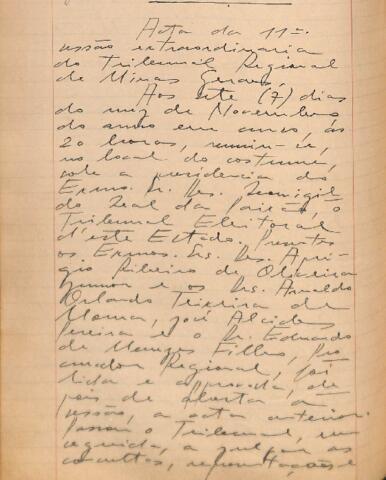 Acta da 11ª
sessão extraordinaria
do Tribunal Regional
de Minas Geraes.
Aos sete (7) dias
do mez de Novembro,
do anno em curso, ás
20 horas, reuniu-se,
no local do costume,
sob a presidencia do
Exmo. Sr. Des.
do Leal da Paixão, o
Tribunal Eleitoral
d'este Estado. Presentes
os Exmos. Srs. Des. Apri-
gio Ribeiro de Oliveira
Junior e os Drs. Arnaldo
Orlando Teixeira de
Moura, José Alcides
Pereira e o Dr. Eduardo
de Menezes Filho, Pro
curador Regional, foi
lida e approvada, de
pois de aberta a
sessão, a acta anterior.
Passou o Tribunal, em
seguida, a julgar as
consultas, representações e